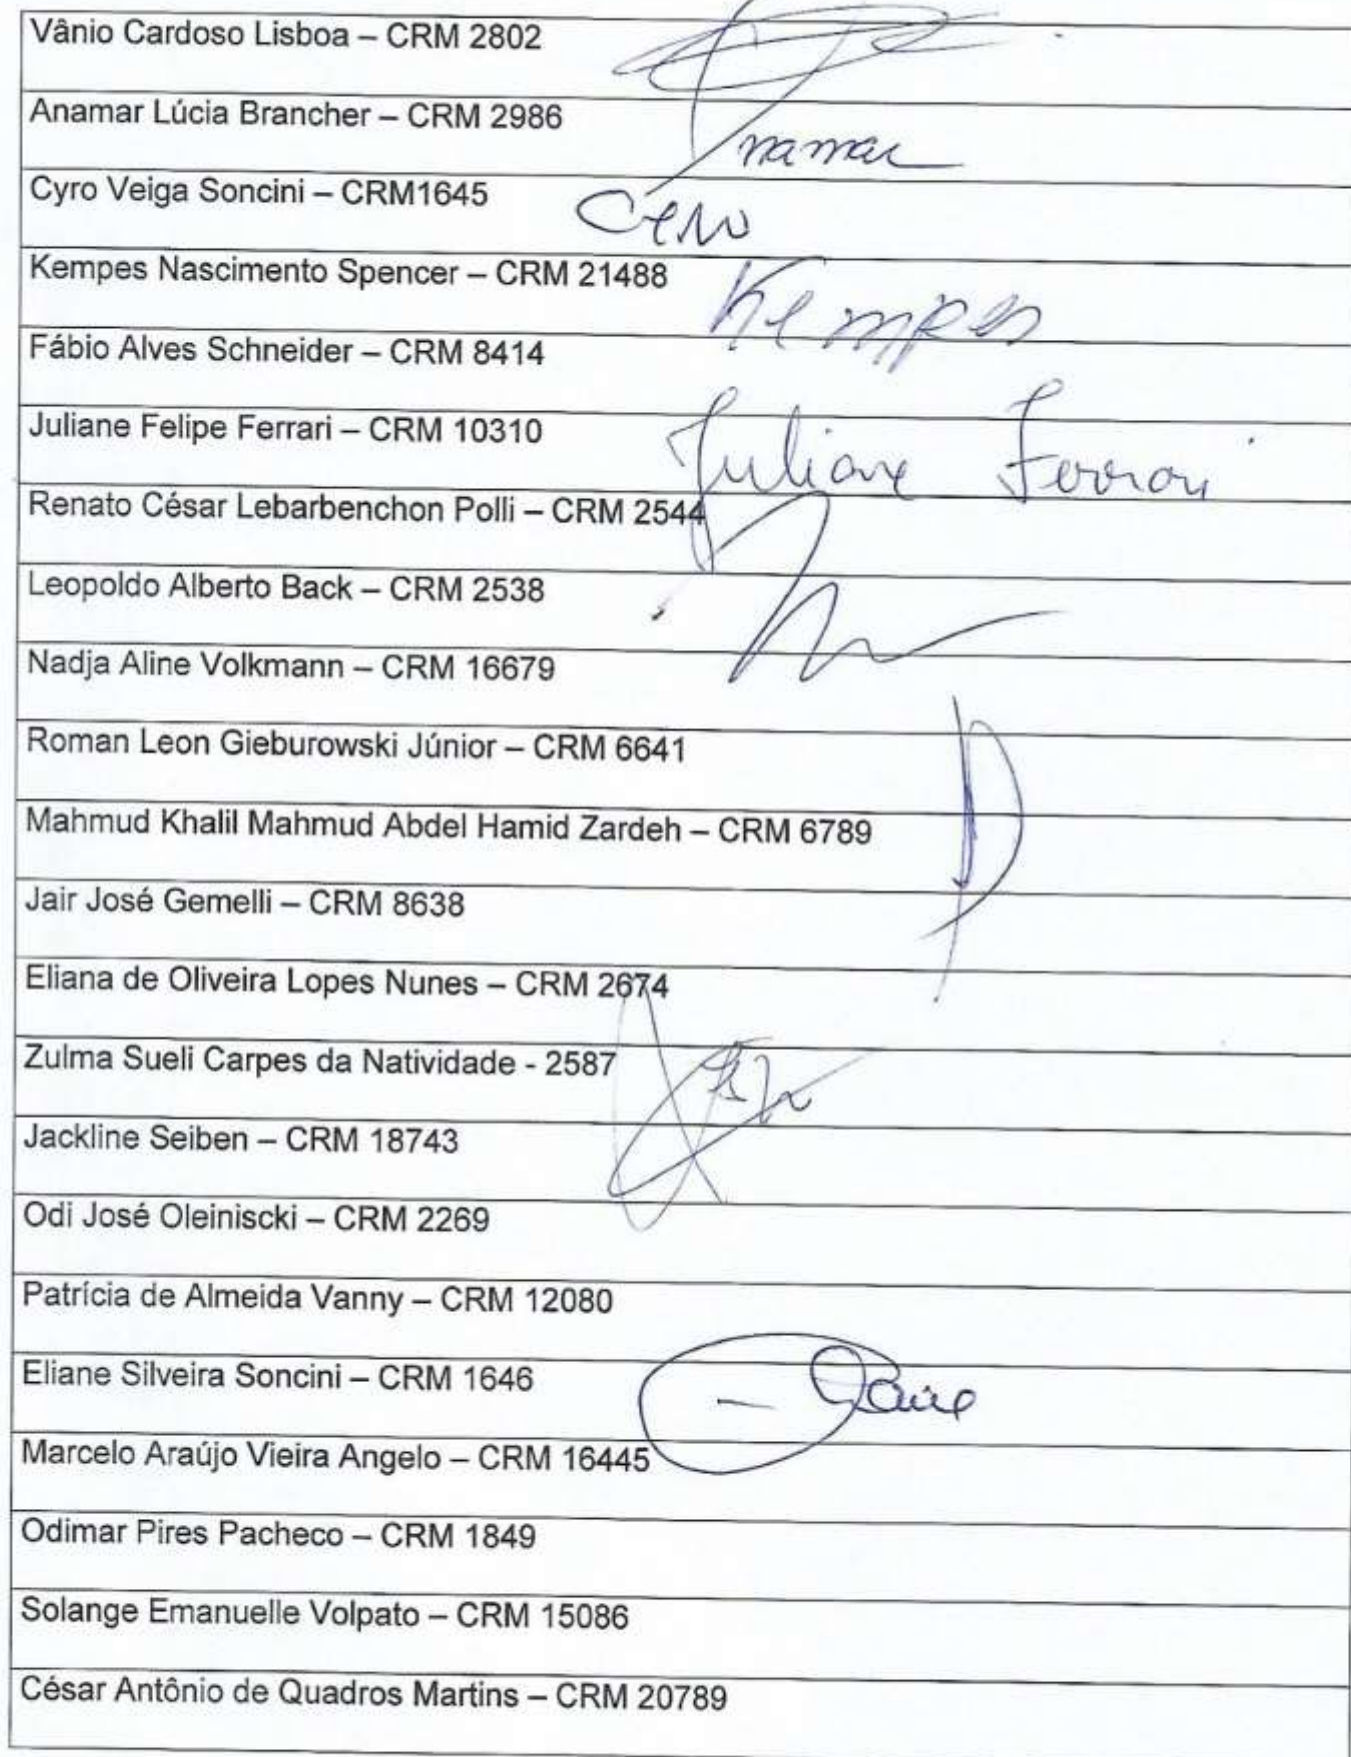 Vânio Cardoso Lisboa – CRM 2802
Anamar Lúcia Brancher – CRM 2986
Anamar
Cyro Veiga Soncini – CRM1645
Cyro
Kempes Nascimento Spencer – CRM 21488
Kempes
Fábio Alves Schneider – CRM 8414
Juliane Felipe Ferrari – CRM 10310
Juliane Ferrari
Renato César Lebarbenchon Polli – CRM 2544
Leopoldo Alberto Back – CRM 2538
Nadja Aline Volkmann – CRM 16679
Roman Leon Gieburowski Júnior – CRM 6641
Mahmud Khalil Mahmud Abdel Hamid Zardeh – CRM 6789
Jair José Gemelli – CRM 8638
Eliana de Oliveira Lopes Nunes – CRM 2674
Zulma Sueli Carpes da Natividade - 2587
Jackline Seiben – CRM 18743
Odi José Oleiniscki – CRM 2269
Patrícia de Almeida Vanny – CRM 12080
Eliane Silveira Soncini – CRM 1646
Marcelo Araújo Vieira Angelo – CRM 16445
Odimar Pires Pacheco – CRM 1849
Solange Emanuelle Volpato – CRM 15086
César Antônio de Quadros Martins – CRM 20789